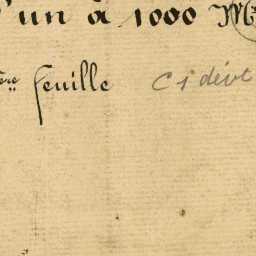 'un à 1000 M
ère feuille C 1 dévt